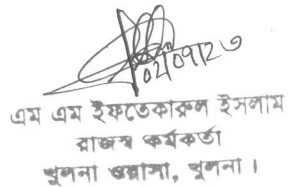 ০2/09/২৩
এম এম ইফতেকারুল ইসলাম
রাজস্ব কর্মকর্তা
খুলনা ওয়াসা, খুলনা।